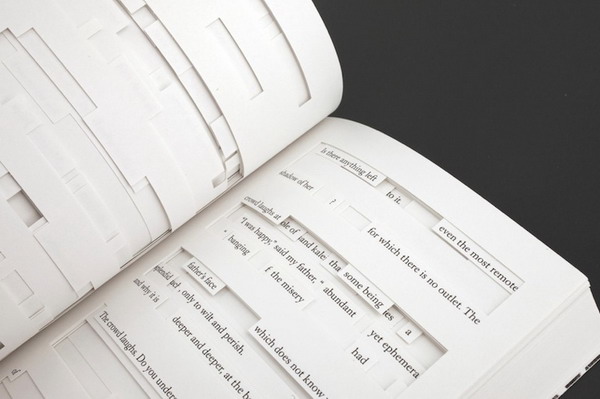 Is there anything left
shadow of her
to it.
even the most remote
?
for which there is no outlet. The
crowd laughs at
"I was happy," said my father,
some being
a
banging
the misery
abundant
yet ephemera
had
splendid,
father's face
and why it is
only to wilt and perish.
which does not know
The crowd laughs. Do you under
deeper and deeper, at the b